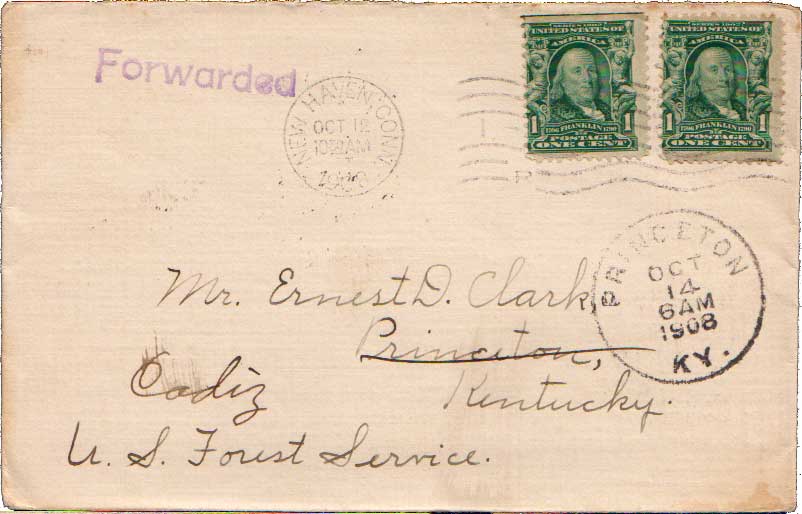 Forwarded
NEW HAVEN, CONN.
OCT 12
10 AM
1908
SERIES 1902
UNITED STATES OF
AMERICA
1 1706 FRANKLIN 1790 1
POSTAGE
ONE CENT
SERIES 1902
UNITED STATES OF
AMERICA
1 1706 FRANKLIN 1790 1
POSTAGE
ONE CENT
PRINCETON
OCT
14
6AM
1908
KY.
Mr. Ernest D. Clark,
Princeton,
Cadiz
Kentucky.
U. S. Forest Service.